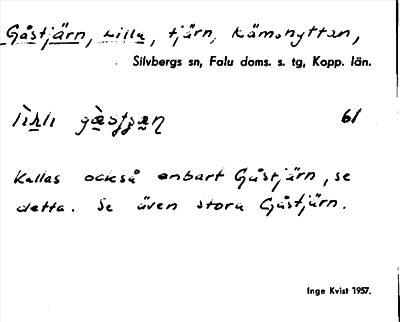 Gåstjärn, Lilla, tjärn, Kämsnyttan,
Silvbergs sn, Falu doms. s. tg, Kopp. län.
61
Kallas också enbart Gåstjärn, se
detta. Se även Stora Gåstjärn.
Inge Kvist 1957.